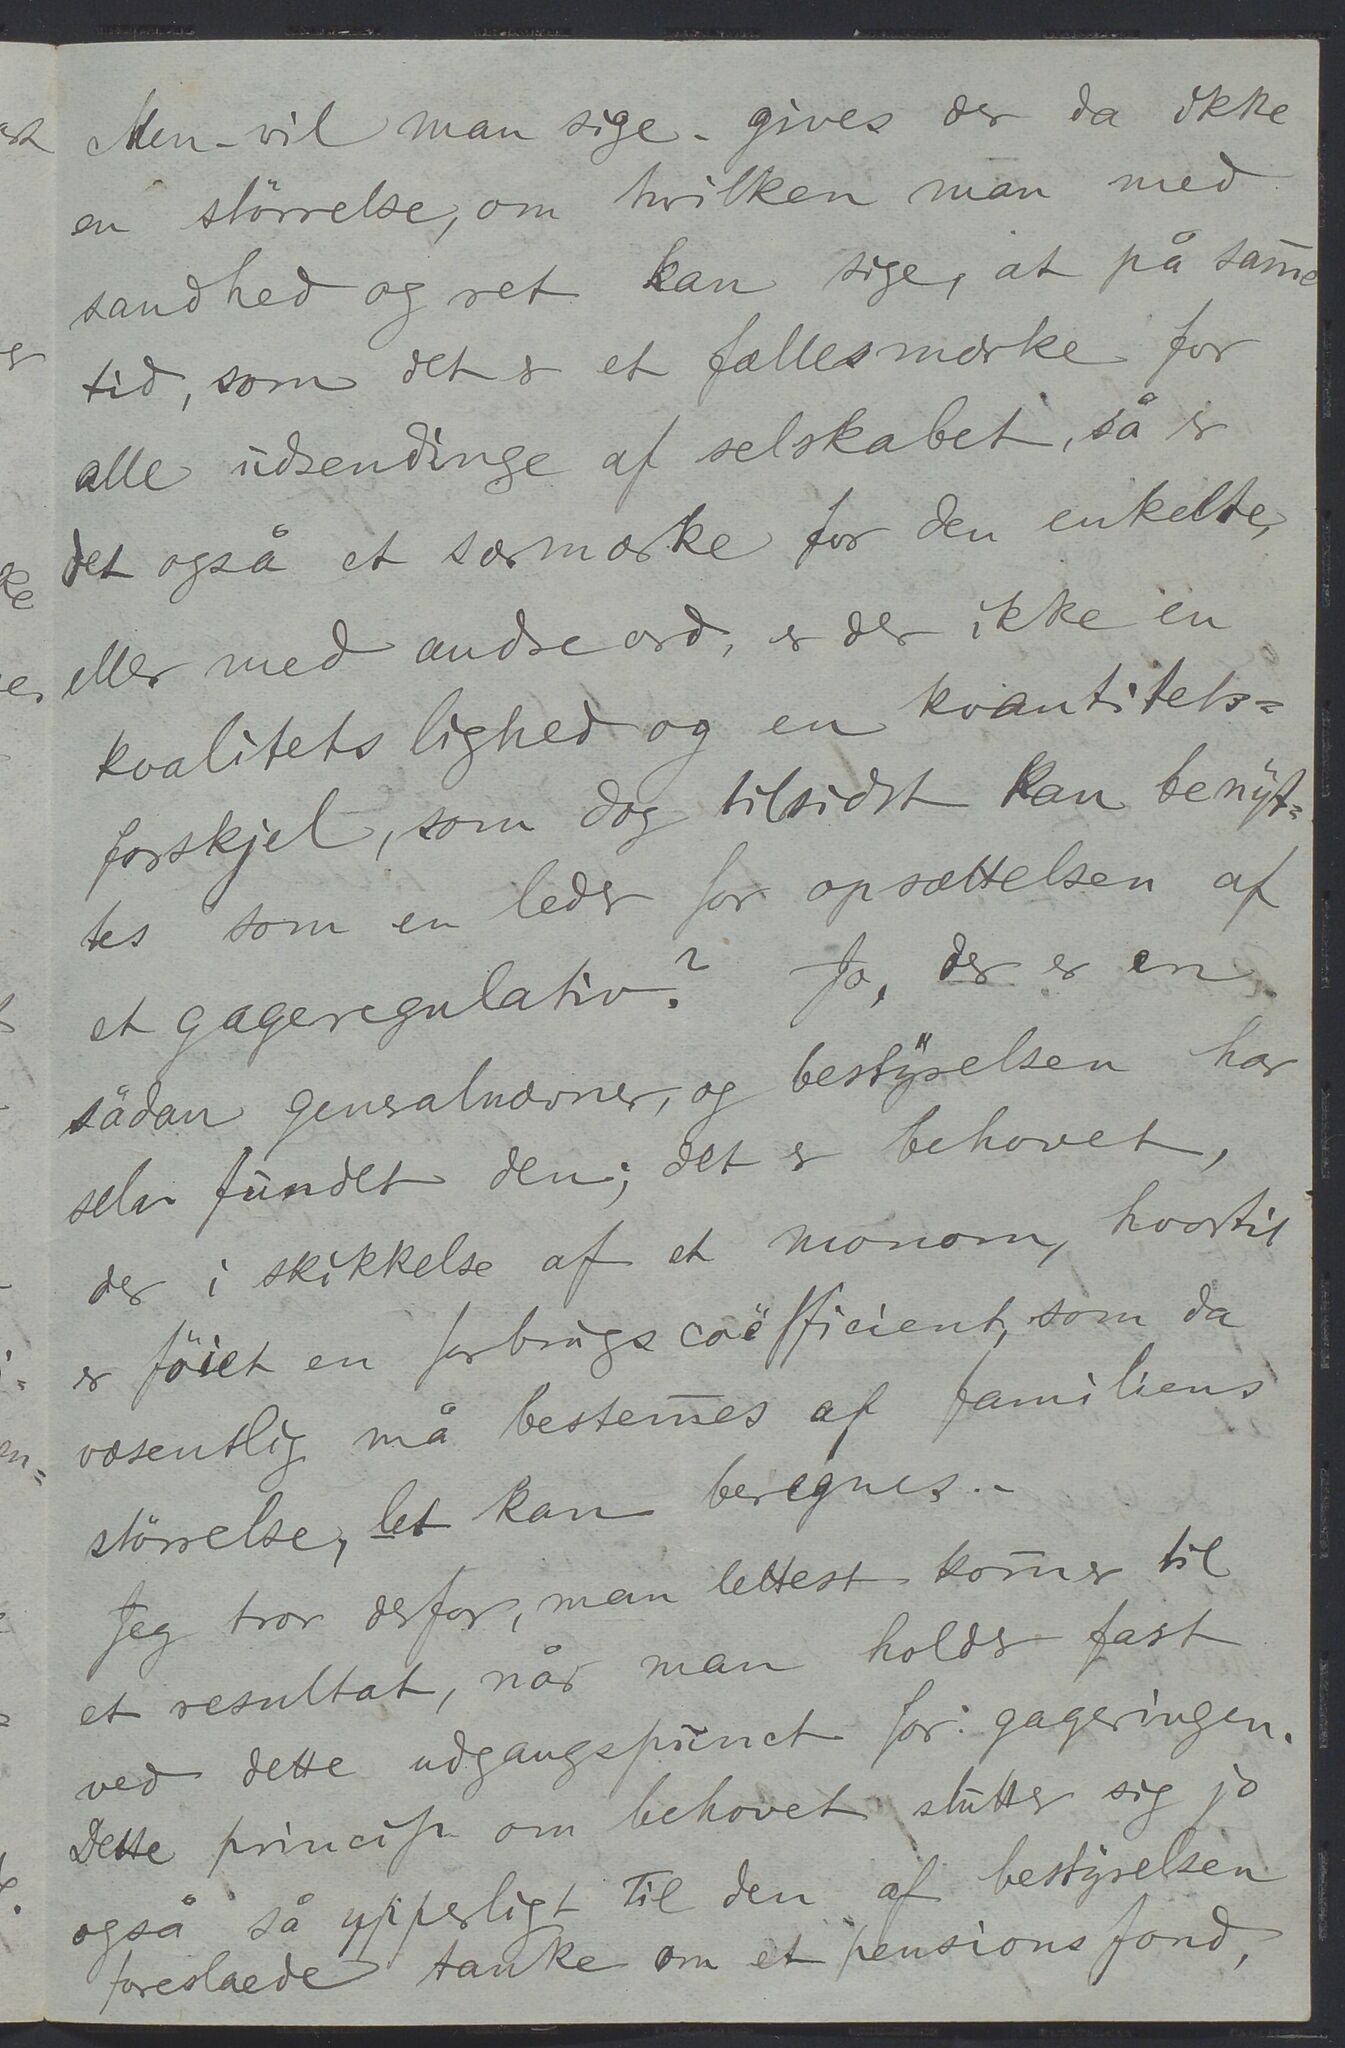 Men - vil man sige - gives der da ikke
en störrelse, om hvilken man med
sandhed og ret kan sige, at på sam̅e
tid, som det er et fællesmærke for
alle udsendinge af selskabet, så er
det også et særmærke for den enkelte,
eller med andre ord, er der ikke en
kvalitets lighed og en kvantitets=
forskjel, som dog tilsidst kan benyt=
tes som en leder for opsættelsen af
et gageregulativ? Jo, der er en
sådan generalnævner, og bestyrelsen har
selv fundet den; det er behovet,
der i skikkelse af et monom, hvortil
er föiet en forbrugscoëfficient, som da
væsentlig må bestem̅es af familiens
störrelse, let kan beregnes. -
Jeg tror derfor, man lettest kom̅er til
et resultat, når man holder fast
ved dette udgangspunct for gageringen.
Dette princip om behovet slutter sig jo
også så ypperligt til den af bestyrelsen
foreslaede tanke om et pensionsfond,